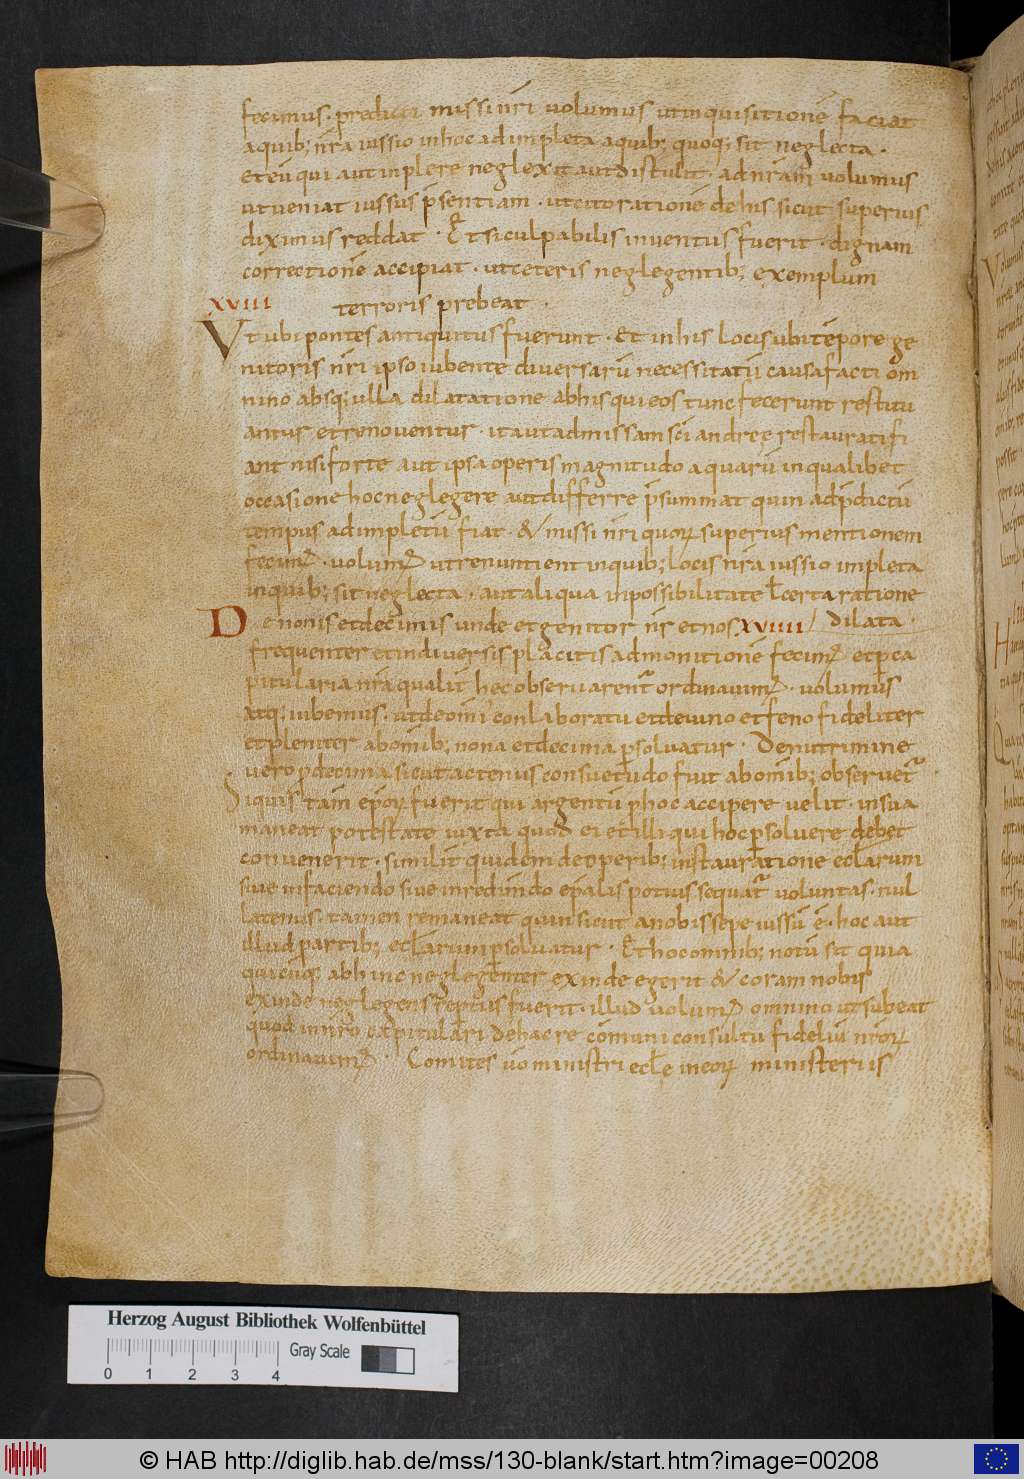 fecimus · predicti missi nr̄i volumus ut inquisitionē faciat
a quib; nr̄a iussio in hoc adimpleta a quib; quoq; sit neglecta ·
et eū qui aut inplere neglexit aut distulit · ad nr̄am volumus
ut veniat iussus p̄sentiam · ut cito rationē de his sicut superius
diximus reddat · Et si culpabilis inventus fuerit · dignam
correctionē accipiat · ut ceteris neglegentib; exemplum
XVIII terroris prebeat ·
Ut ubi pontes antiquitus fuerunt · Et in his locis ubi tēpore ge
nitoris nr̄i ipso iubente diversarū necessitatū causa facti om
nino absq; ulla dilatatione ab his qui eos tunc fecerunt restitu
antur et renoventur · ita ut ad missam sc̄i andreę restaurati fi
ant nisi forte aut ipsa operis magnitudo aquarū in qualibet
occasione hoc neglegere aut differre p̄summat quin ad p̄dictū
tempus adimpletū fiat · & missi nr̄i quoꝝ superius mentionem
fecim᷒ · volum᷒ ut renuntient in quib; locis nr̄a iussio impleta
in quib; sit neglecta · aut aliqua inpossibilitate ł certa ratione
De nonis et decimis unde et genitor nr̄ et nos XVIIII dilata ·
frequenter et in diversis placitis admonitionē fecim᷒ et p ca
pitularia nr̄a qualit̄ hec observarent᷑ ordinavim᷒ · volumus
atq; iubemus · ut de om̄i conlaboratu et de vino et feno fideliter
et pleniter ab om̄ib; nona et decima p̱solvatur · De nutrimine
vero p decima sicut actenus consuetudo fuit ab om̄ib; observet᷑
Si quis tam̄ ep̄oꝝ fuerit qui argentū p hoc accipere velit · in sua
maneat potestate iuxta quod ei et illi qui hoc p̱solvere debet
convenerit · similit̄ quidem de operib; in stauratione ecl̄arum
sive in faciendo sive in redim̄do ep̄alis potius sequat᷑ voluntas · nul
latenus · tamen remaneat quin sicut a nobis sepe iussū ē · hoc aut
illud partib; ecl̄arum p̱solvatur · Et hoc omnib; notū sit quia
quicūq; abhinc neglegenter exinde egerit & coram nobis
exinde neglegens reptus fuerit · illud volum᷒ omnino ut subeat
quod in nr̄o capitulari de hac re cōmuni consultu fideliū nr̄oꝝ
ordinavim᷒ · Comites ūo ministri ecl̄ę in eoꝝ ministeriis
Herzog August Bibliothek Wolfenbüttel
Gray Scale
0 1 2 3 4
© HAB http://diglib.hab.de/mss/130-blank/start.htm?image=00208